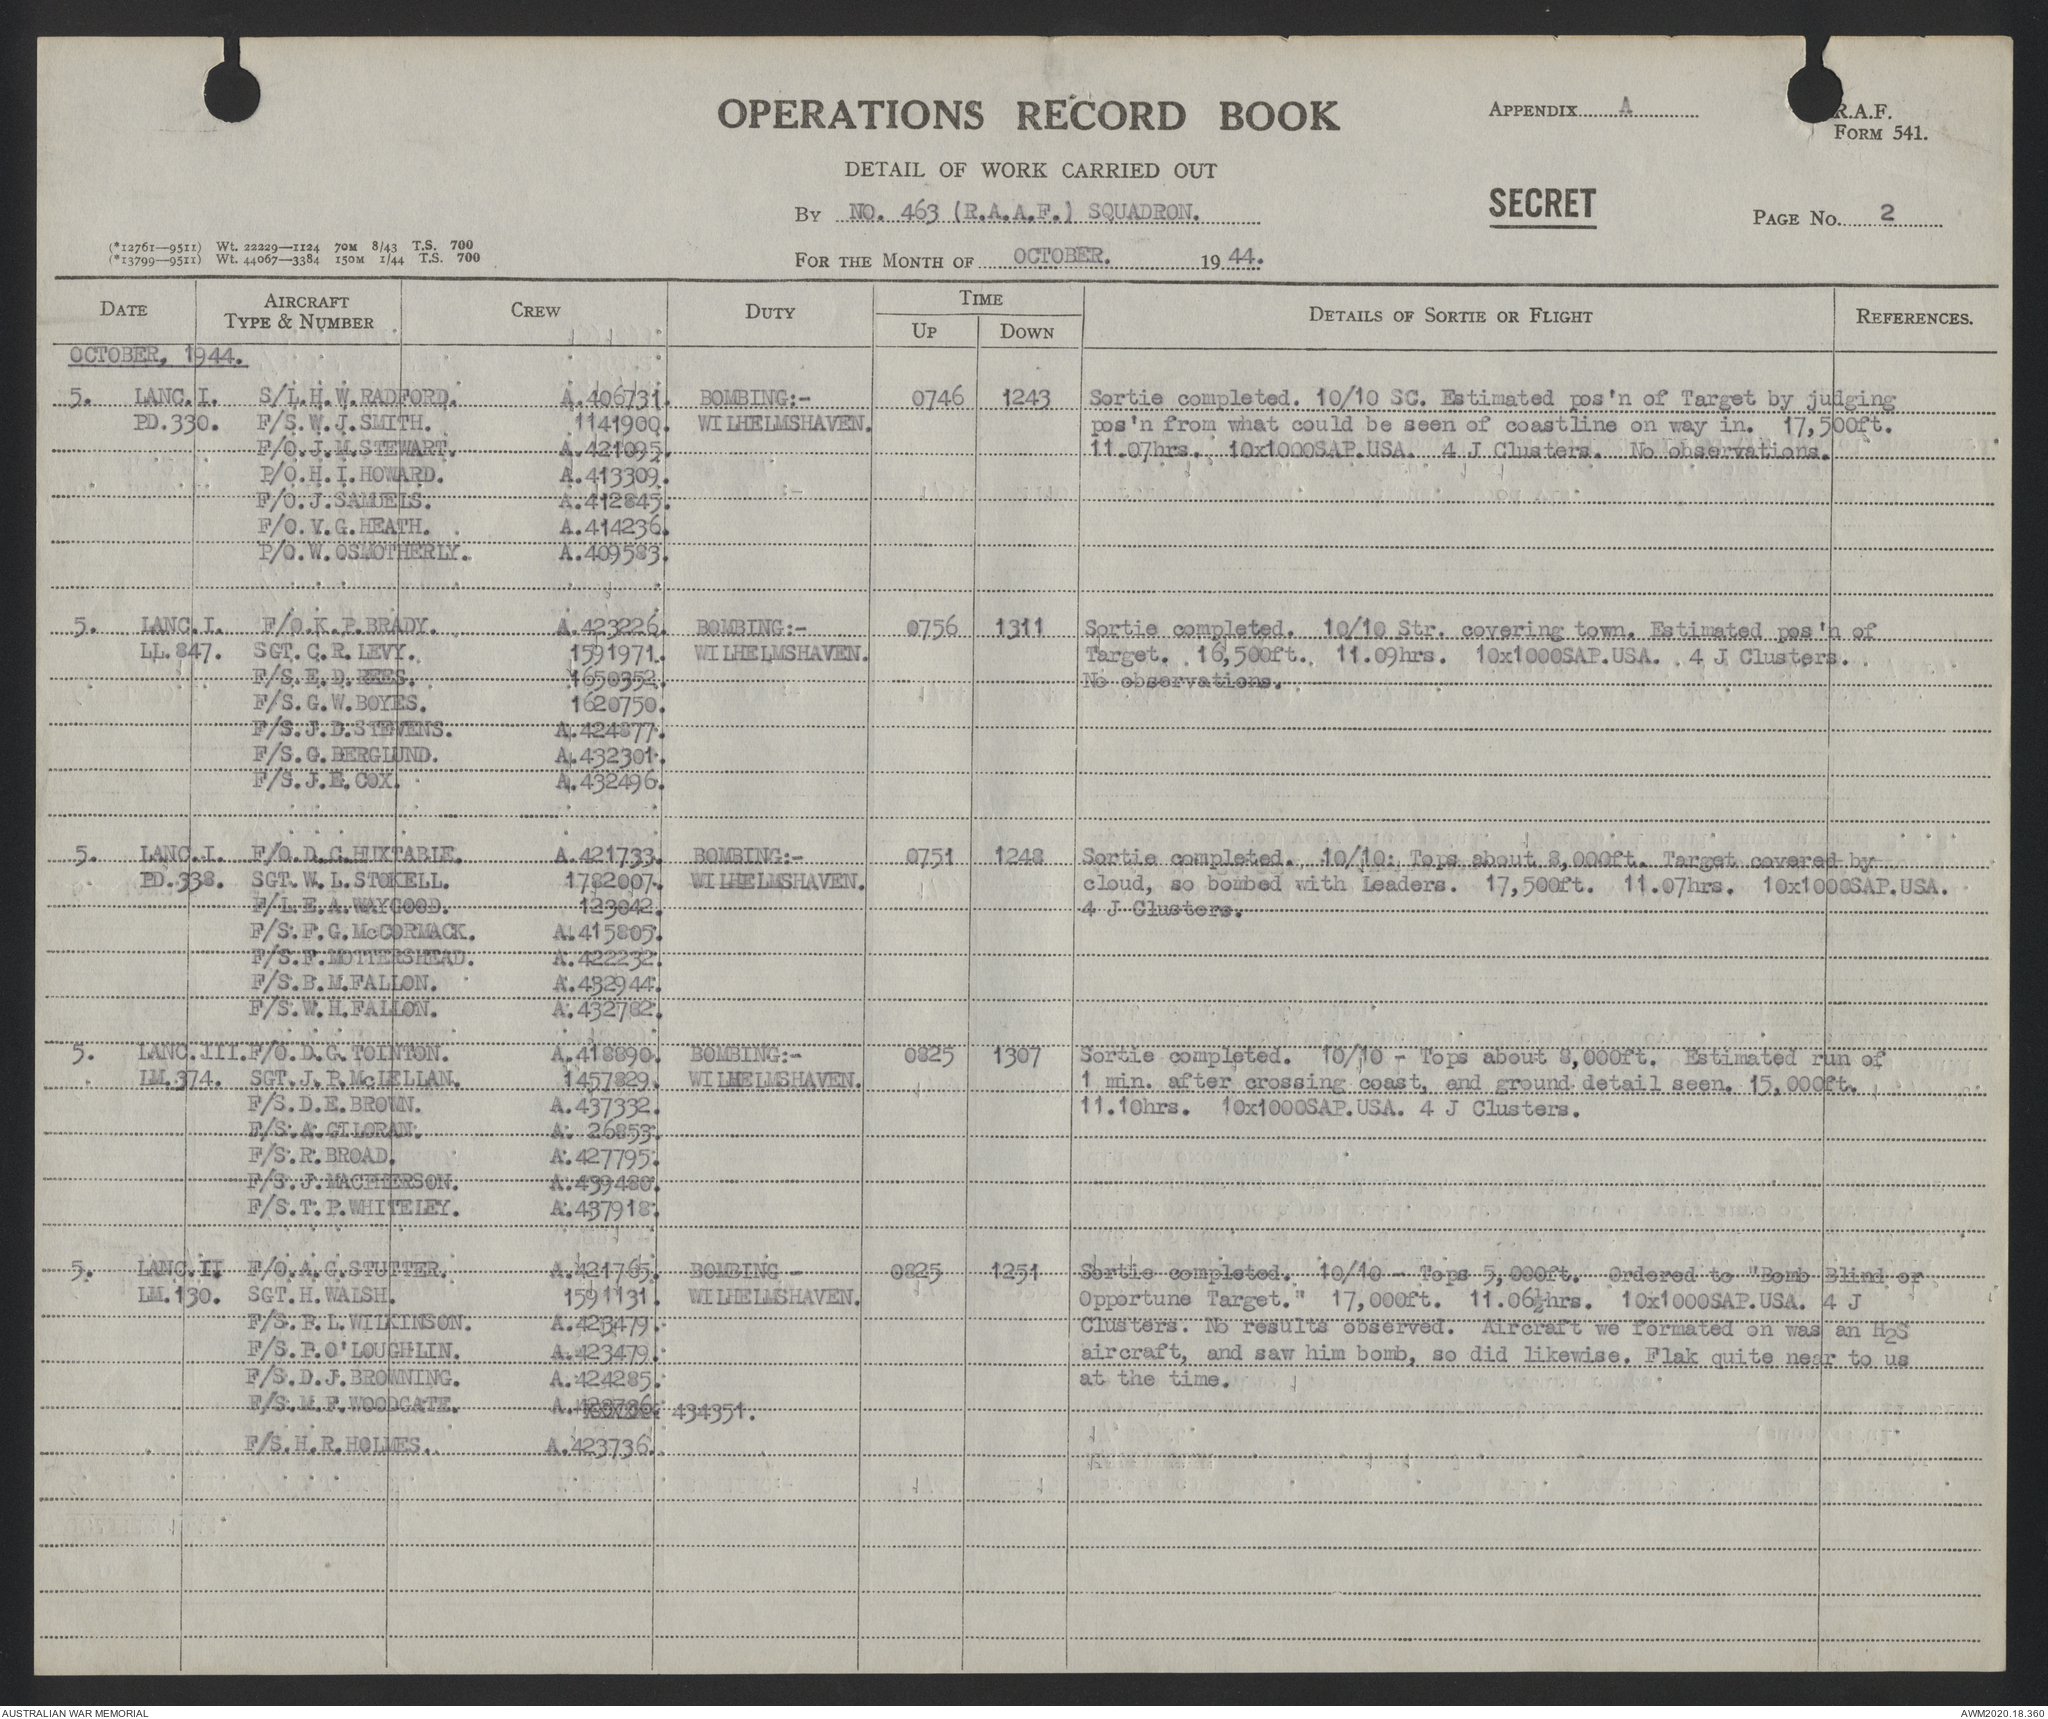 OPERATIONS RECORD BOOK
APPENDIX A
R.A.F.
FORM 541.
DETAIL OF WORK CARRIED OUT
BY NO. 463 (R.A.A.F.) SQUADRON.
SECRET
PAGE No. 2
(*12761—9511) Wt. 22229—1124 70M 8/43 T.S. 700
(*13799—9511) Wt. 44067—3384 150M 1/44 T.S. 700
FOR THE MONTH OF OCTOBER. 1944.
DATE AIRCRAFT TYPE & NUMBER CREW DUTY TIME UP DOWN DETAILS OF SORTIE OR FLIGHT REFERENCES.
OCTOBER, 1944.
5. LANC.I. S/L.H.W.RADFORD. A.406731. BOMBING:- 0746 1243 Sortie completed. 10/10 SC. Estimated pos'n of Target by judging
PD.330. F/S.W.J.SMITH. 1141900. WILHELMSHAVEN. pos'n from what could be seen of coastline on way in. 17,500ft.
F/O.J.M.STEWART. A.421095. 11.07hrs. 10x1000SAP.USA. 4 J Clusters. No observations.
P/O.H.I.HOWARD. A.413309.
F/O.J.SAMUELS. A.412845.
F/O.V.G.HEATH. A.414236.
P/O.W.OSMOTHERLY. A.409583.
5. LANC.I. F/O.K.P.BRADY. A.423226. BOMBING:- 0756 1311 Sortie completed. 10/10 Str. covering town. Estimated pos'n of
LL.847. SGT.C.R.LEVY. 1591971. WILHELMSHAVEN. Target. 16,500ft. 11.09hrs. 10x1000SAP.USA. 4 J Clusters.
F/S.E.D.REES. 1650352. No observations.
F/S.G.W.BOYES. 1620750.
F/S.J.D.STEVENS. A.424877.
F/S.G.BERGLUND. A.432301.
F/S.J.E.COX. A.432496.
5. LANC.I. F/O.D.C.HUXTABLE. A.421733. BOMBING:- 0751 1248 Sortie completed. 10/10: Tops about 8,000ft. Target covered by
PD.338. SGT.W.L.STOKELL. 1782007. WILHELMSHAVEN. cloud, so bombed with Leaders. 17,500ft. 11.07hrs. 10x1000SAP.USA.
F/L.E.A.WAYGOOD. 123042. 4 J Clusters.
F/S.F.G.McCORMACK. A.415805.
F/S.F.MOTTERSHEAD. A.422232.
F/S.B.M.FALLON. A.432944.
F/S.W.H.FALLON. A.432782.
5. LANC.III. F/O.D.G.TOINTON. A.418890. BOMBING:- 0825 1307 Sortie completed. 10/10 - Tops about 8,000ft. Estimated run of
LM.374. SGT.J.P.McLELLAN. 1457829. WILHELMSHAVEN. 1 min. after crossing coast, and ground detail seen. 15,000ft.
F/S.D.E.BROWN. A.437332. 11.10hrs. 10x1000SAP.USA. 4 J Clusters.
F/S.A.GILORAN. A. 26853.
F/S.R.BROAD. A.427795.
F/S.J.MACPHERSON. A.439480.
F/S.T.P.WHITELEY. A.437918.
5. LANC.II F/O.A.G.STUTTER. A.421765. BOMBING - 0825 1251 Sortie completed. 10/10 - Tops 5,000ft. Ordered to "Bomb Blind or
LM.130. SGT.H.WALSH. 1591131. WILHELMSHAVEN. Opportune Target." 17,000ft. 11.06½hrs. 10x1000SAP.USA. 4 J
F/S.F.L.WILKINSON. A.423479. Clusters. No results observed. Aircraft we formated on was an H2S
F/S.P.O'LOUGHLIN. A.423479. aircraft, and saw him bomb, so did likewise. Flak quite near to us
F/S.D.J.BROWNING. A.424285. at the time.
F/S.M.F.WOODGATE. A. 434351.
F/S.H.R.HOLMES. A.423736.
AUSTRALIAN WAR MEMORIAL
AWM2020.18.360